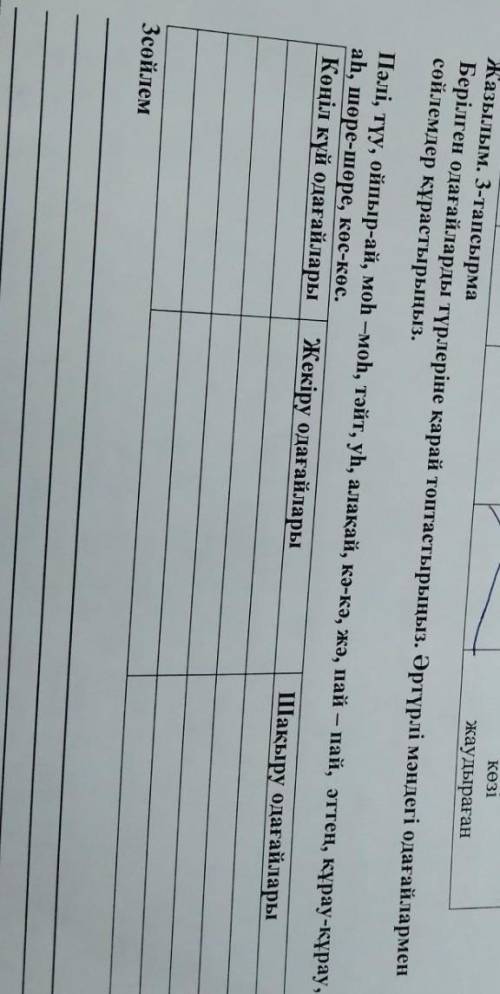 көзі
жаудыраған
Жазылым. 3-тапсырма
Берілген одағайларды түрлеріне қарай топтастырыңыз. Әртүрлі мәндегі одағайлармен
сөйлемдер құрастырыңыз.
Пәлі, түу, ойпыр-ай, моһ –моһ, тәйт, уһ, алақай, кә-кә, жә, пай – пай, әттең, құрау-құрау,
аһ, шөре-шөре, көс-көс.
Көңіл күй одағайлары Жекіру одағайлары Шақыру одағайлары
3сөйлем